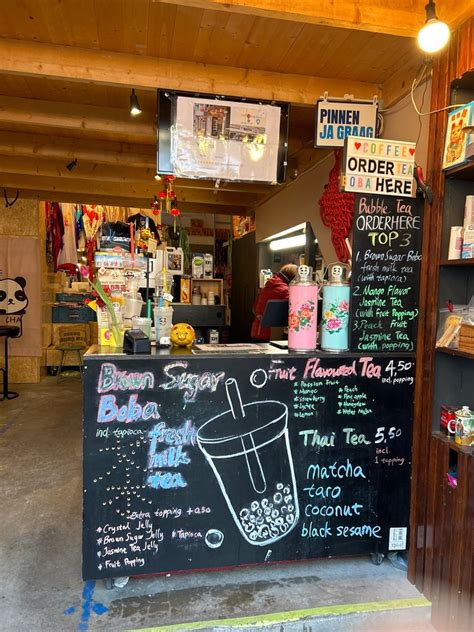 PINNEN
JA GRAAG
COFFEE
ORDER TEA
OBA HERE
Bubble Tea
ORDER HERE
TOP 3
1. Brown Sugar Boba
fresh milk tea
(with tapioca)
2. Mango Flavor
Jasmine Tea
(with Fruit Popping)
3. Peach Fruit
Jasmine Tea
(with popping)
CHA
Brown Sugar
Boba
incl. tapioca
fresh
milk
tea
Extra topping +0.50
* Crystal Jelly
* Brown Sugar Jelly
* Tapioca
* Jasmine Tea Jelly
* Fruit Popping
Fruit Flavoured Tea 4,50
incl. popping
* Passion Fruit
* Mango
* Strawberry
* Lychee
* Lemon
* Peach
* Pineapple
* Honeydew
* Water Melon
Thai Tea 5,50
incl.
1 topping
matcha
taro
coconut
black sesame